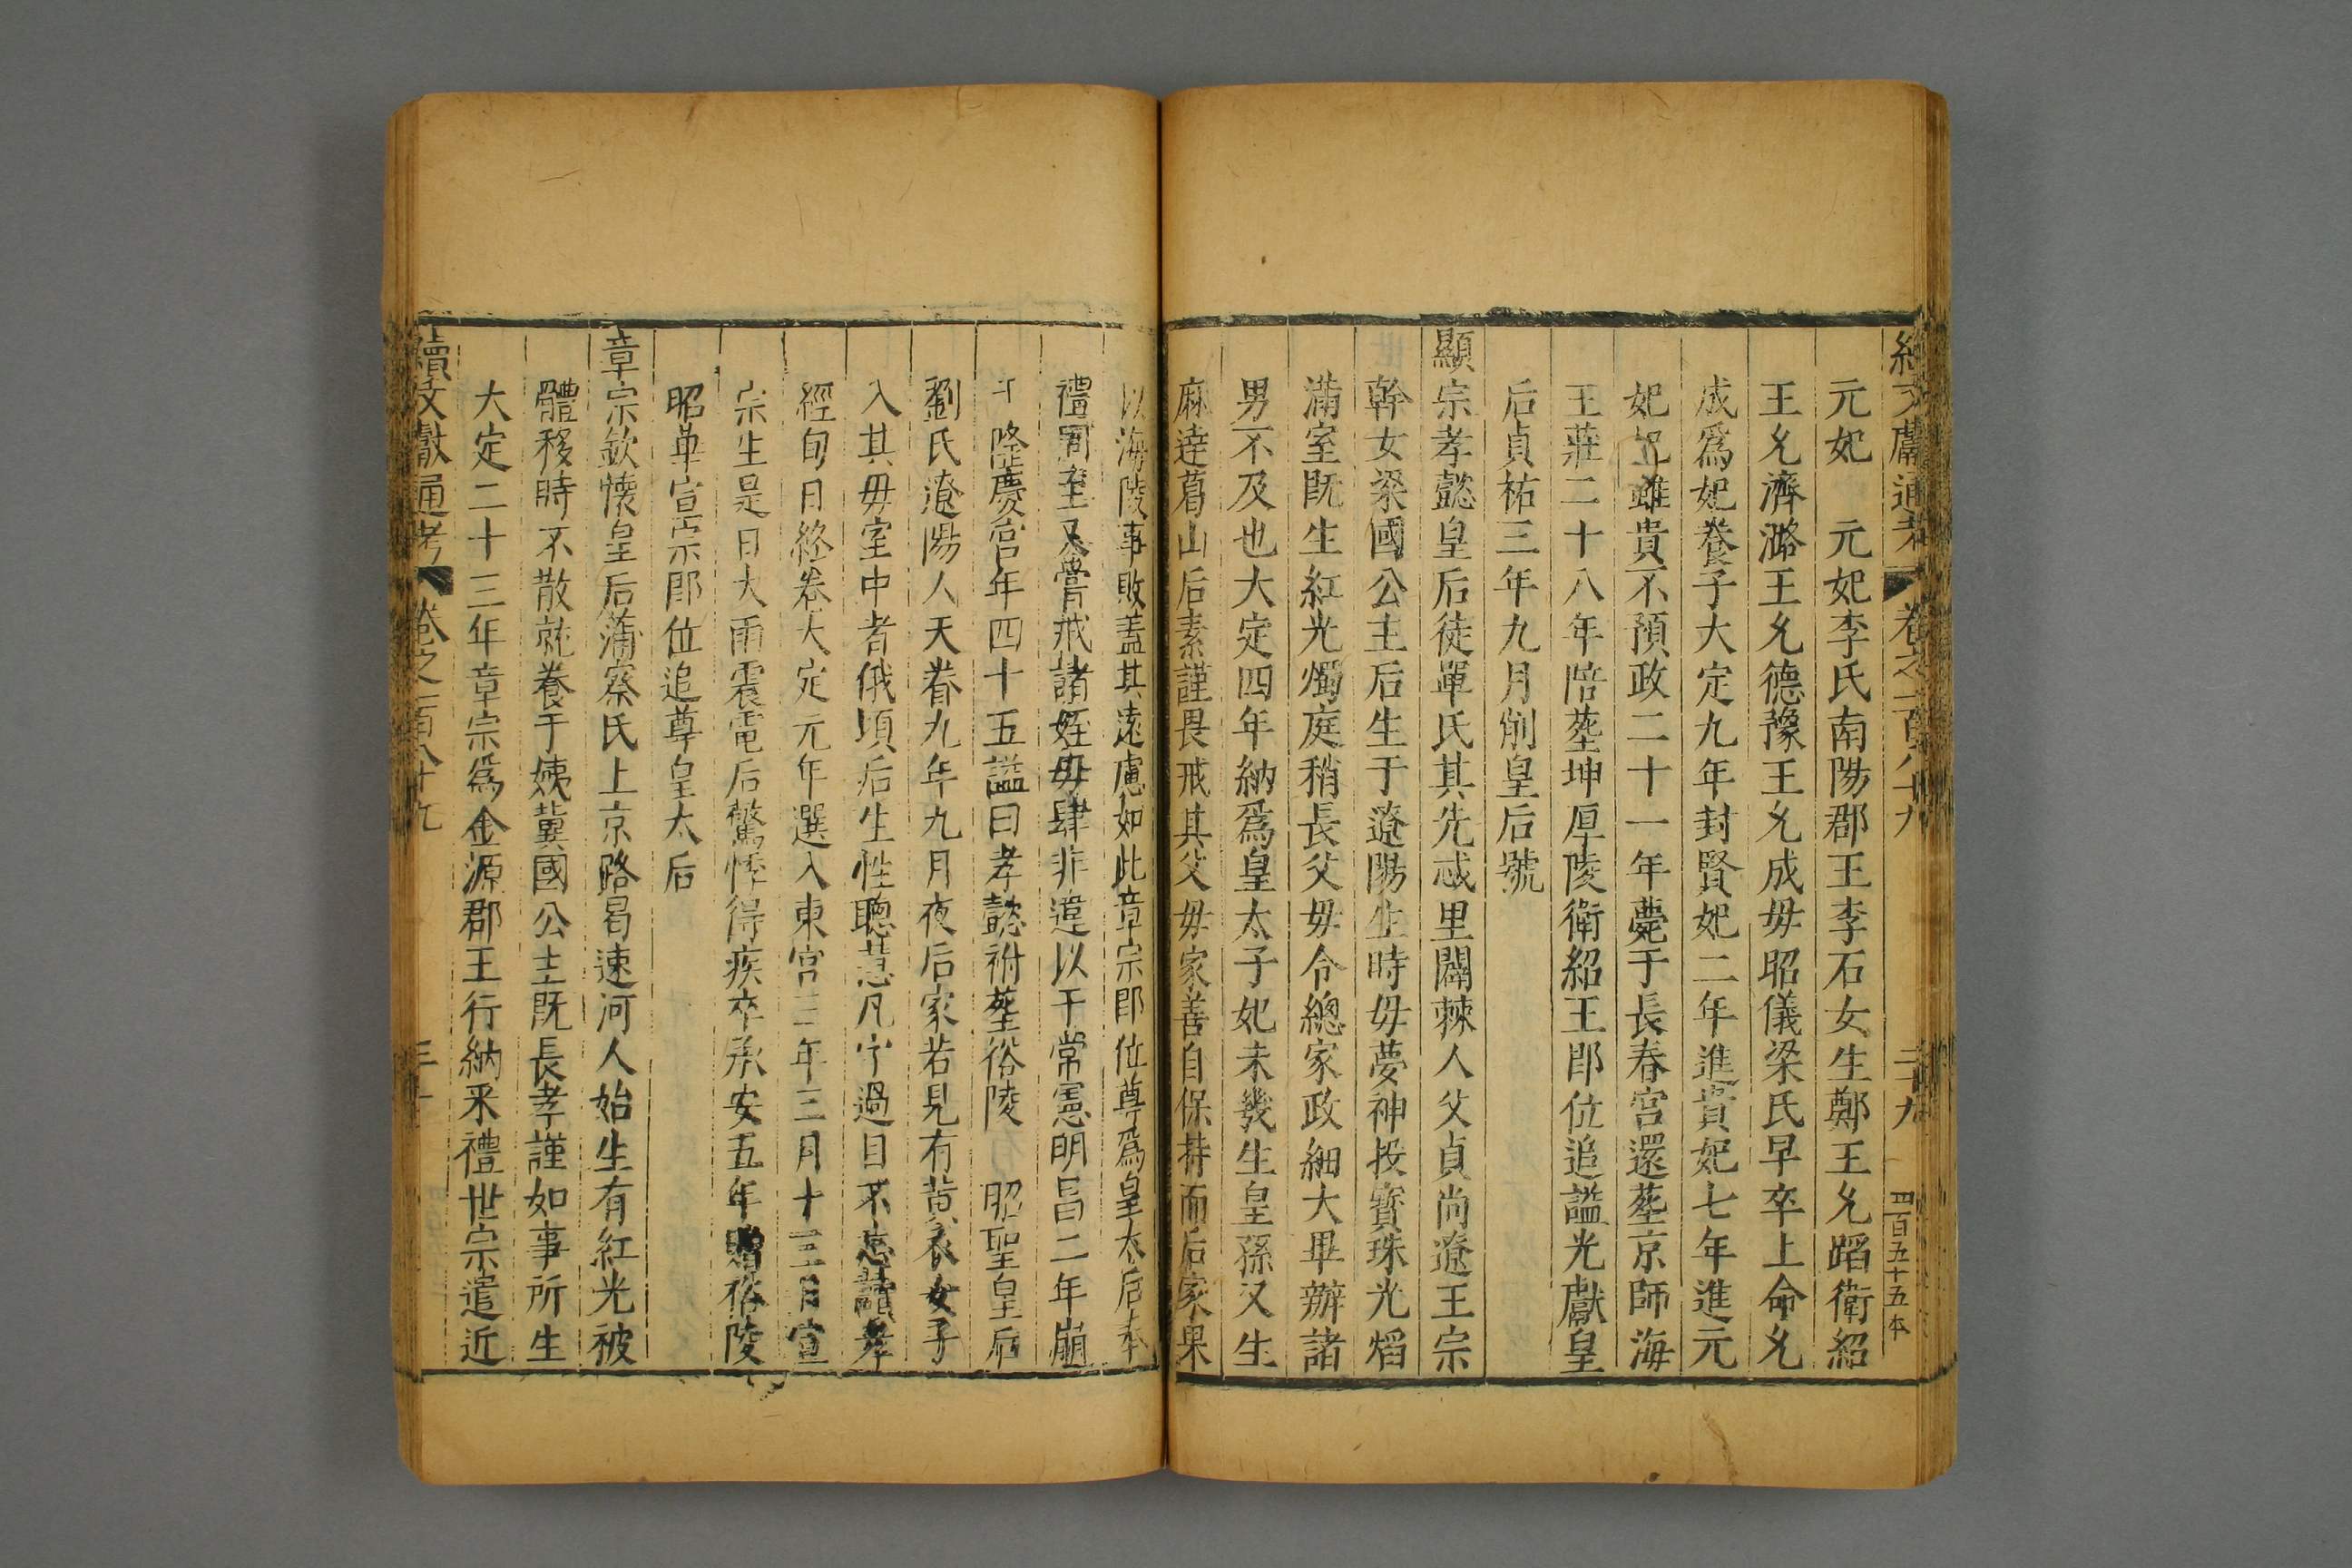 續文獻通考 卷之一百八十九 二十九 四百五十五本
元妃 元妃李氏南陽郡王李石女生鄭王允蹈衛紹
王允濟潞王允德豫王允成母昭儀梁氏早卒上命允
成爲妃養子大定九年封賢妃二年進貴妃七年進元
妃妃雖貴不預政二十一年薨于長春宮還塟京師海
王莊二十八年陪塟坤厚陵衛紹王即位追謚光獻皇
后貞祐三年九月削皇后號
顯宗孝懿皇后徒單氏其先忒里闢棘人父貞尚遼王宗
幹女梁國公主后生于遼陽生時母夢神授寳珠光熖
滿室既生紅光燭庭稍長父母令總家政細大畢辦諸
男不及也大定四年納爲皇太子妃未幾生皇孫又生
麻達葛山后素謹畏戒其父母家善自保持而后家果
以海陵事敗蓋其遠慮如此章宗即位尊爲皇太后奉
禮周至又嘗戒諸姪毋肆非違以干常憲明昌二年崩
于隆慶宮年四十五謚曰孝懿祔塟裕陵 昭聖皇后
劉氏遼陽人天眷九年九月夜后家若見有黄衣女子
入其母室中者俄頃后生性聰慧凡字過目不忘讀孝
經旬日終卷大定元年選入東宮三年三月十三日宣
宗生是日大雨震電后驚悸得疾卒承安五年贈裕陵
昭華宣宗即位追尊皇太后
章宗欽懷皇后蒲察氏上京路曷速河人始生有紅光被
體移時不散就養于姨冀國公主既長孝謹如事所生
大定二十三年章宗爲金源郡王行納采禮世宗遣近
續文獻通考 卷之一百八十九